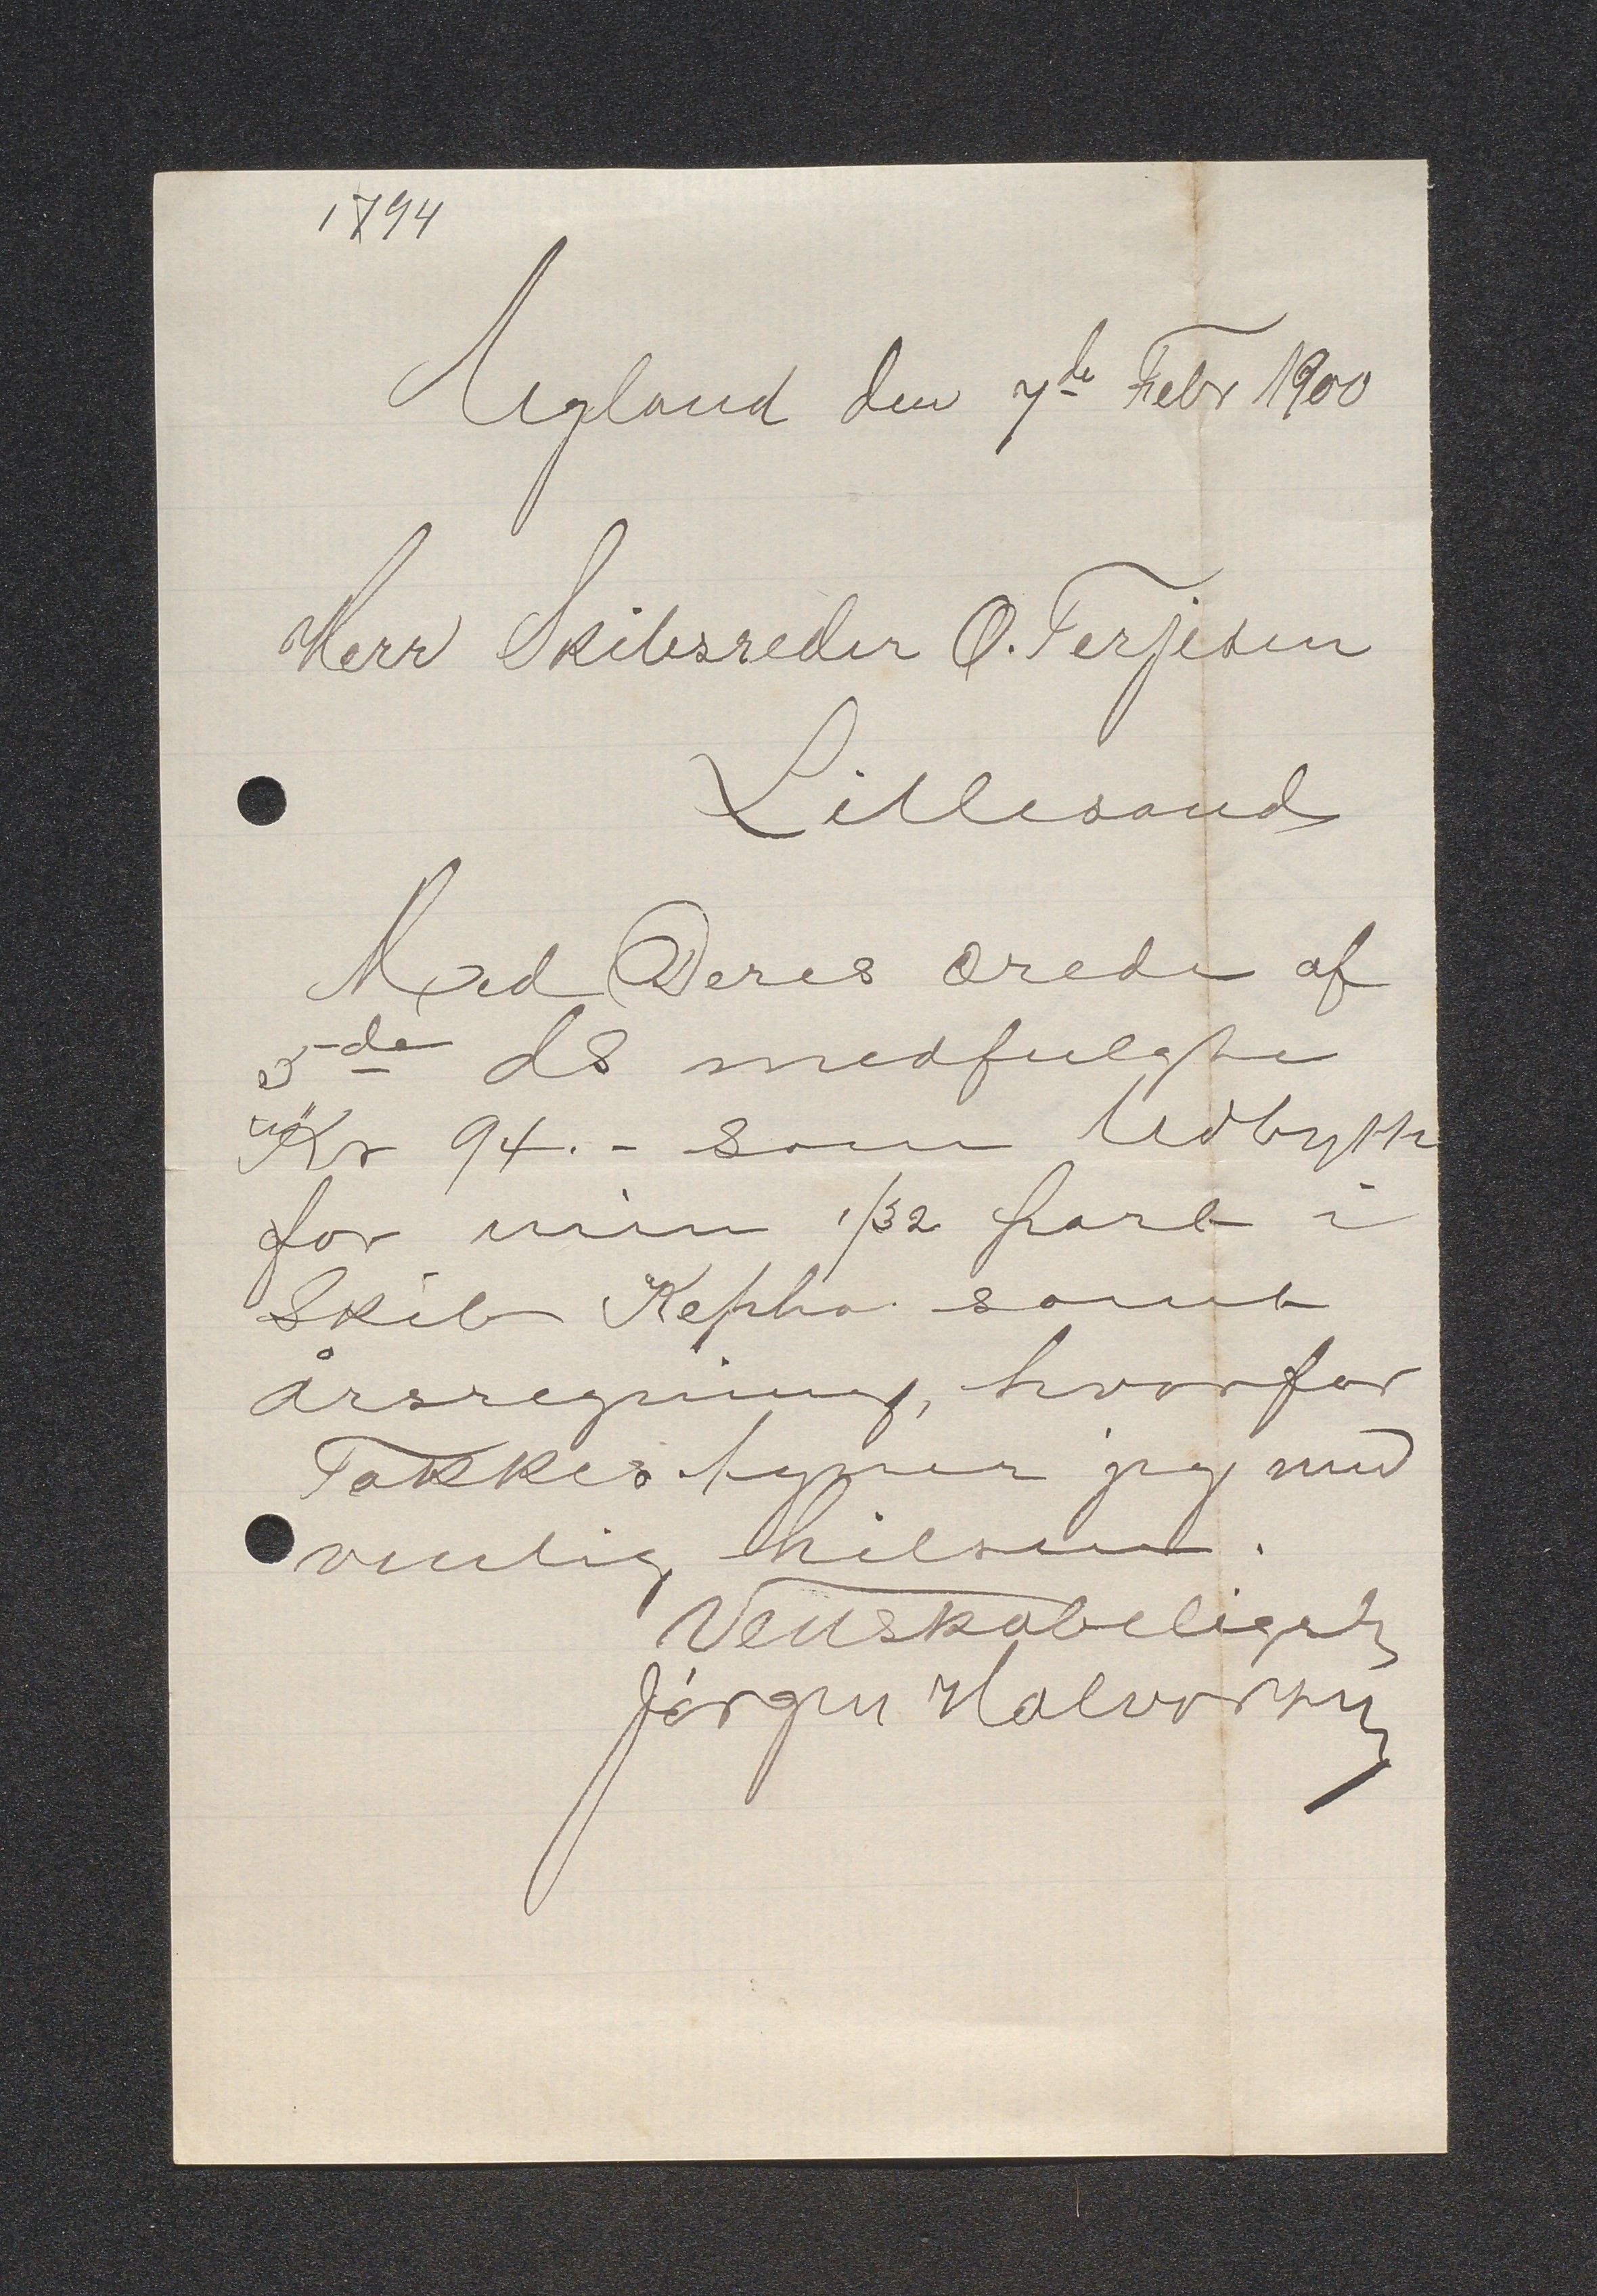 1794
Ugland den 7de Febr 1900
Herr Skibsreder O. Terjesen
Lillesand
Med Deres ærede af
5te ds medfulgte
Kr 94.- som Udbytte
for min 1/32 part i
Skib Kepha samt
årsregning, hvorfor
Takkes. tegner jeg med
venlig hilsen.
Venskabeligst
Jörgen Halvorsen